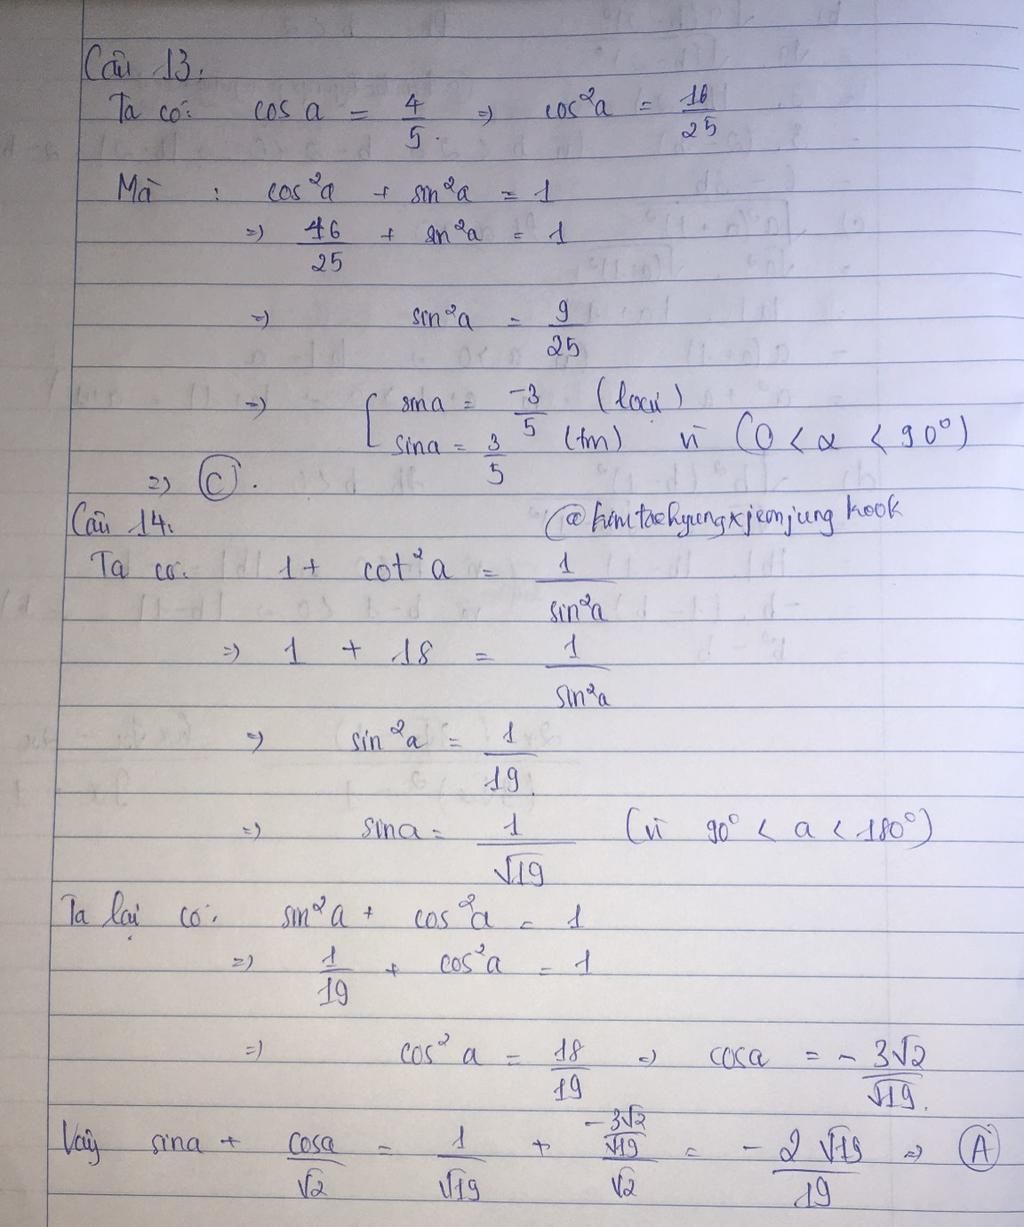 Câu 13.
Ta có: cos a = 4/5 => cos²a = 16/25
Mà : cos²a + sin²a = 1
=> 16/25 + sin²a = 1
=> sin²a = 9/25
=> [ sina = -3/5 (loại)
sina = 3/5 (tm) vì (0 < α < 90°)
=> C.
Câu 14.
@kimtaehyungxjeonjungkook
Ta có: 1 + cot²a = 1/sin²a
=> 1 + 18 = 1/sin²a
=> sin²a = 1/19.
=> sina = 1/√19 (vì 90° < a < 180°)
Ta lại có: sin²a + cos²a = 1
=> 1/19 + cos²a = 1
=> cos²a = 18/19 => cosa = - 3√2/√19.
Vậy sina + cosa/√2 = 1/√19 + (-3√2/√19)/√2 = - 2√19/19 => A